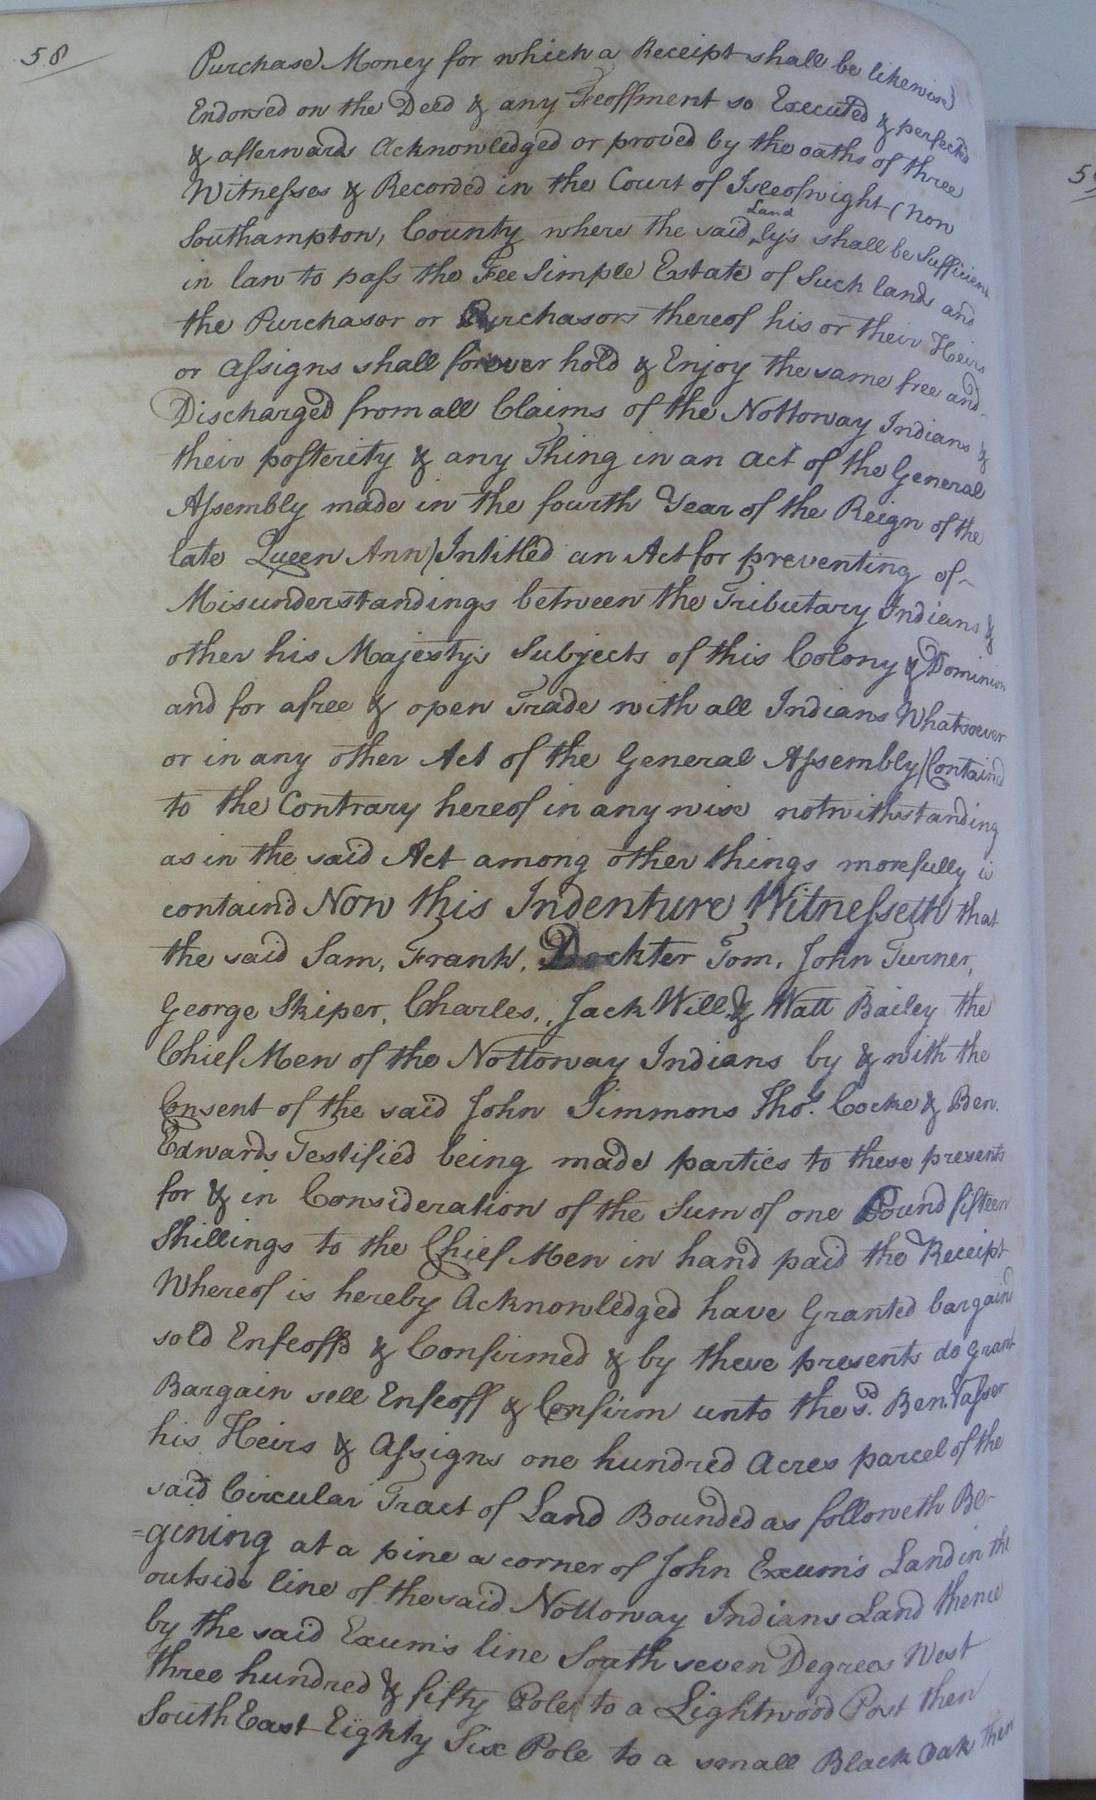 58
Purchase Money for which a Receipt shall be likewise
Endorsed on the Deed & any Feoffment so Executed & perfected
& afterwards Acknowledged or proved by the oaths of three
Witnesses & Recorded in the Court of Isleofwight (now
Southampton, County where the said Land ly's shall be Sufficient
in law to pass the Fee Simple Estate of Such lands and
the Purchasor or Purchasors thereof his or their Heirs
or assigns shall forever hold & Enjoy the same free and
Discharged from all Claims of the Nottoway Indians &
their posterity & any Thing in an act of the General
Assembly made in the fourth Year of the Reign of the
late Queen Ann) Intitled an Act for preventing of
Misunderstandings between the Tributary Indians &
other his Majesty's Subjects of this Colony & Dominion
and for a free & open Trade with all Indians Whatsoever
or in any other Act of the General Assembly) Containd
to the Contrary hereof in any wise notwithstanding
as in the said Act among other things morefully is
containd Now this Indenture Witnesseth that
the said Sam, Frank, Dockter Tom, John Turner,
George Skiper, Charles, Jack Will & Watt Bailey the
Chief Men of the Nottoway Indians by & with the
Consent of the said John Simmons Thos. Cocke & Ben.
Edwards Testified being made parties to these presents
for & in Consideration of the Sum of one Pound fifteen
Shillings to the Chief Men in hand paid the Receipt
Whereof is hereby Acknowledged have Granted bargaind
sold Enfeoffd & Confirmed & by these presents do Grant
Bargain sell Enfeoff & Confirm unto the sd. Ben. Tasser
his Heirs & Assigns one hundred Acres parcel of the
said Circular Tract of Land Bounded as followeth Be-
=gining at a pine a corner of John Exum's Land in the
outside line of the said Nottoway Indians Land thence
by the said Exum's line South seven Degrees West
three hundred & fifty Poles to a Lightwood Post then
South East Eighty Six Pole to a small Black Oak then